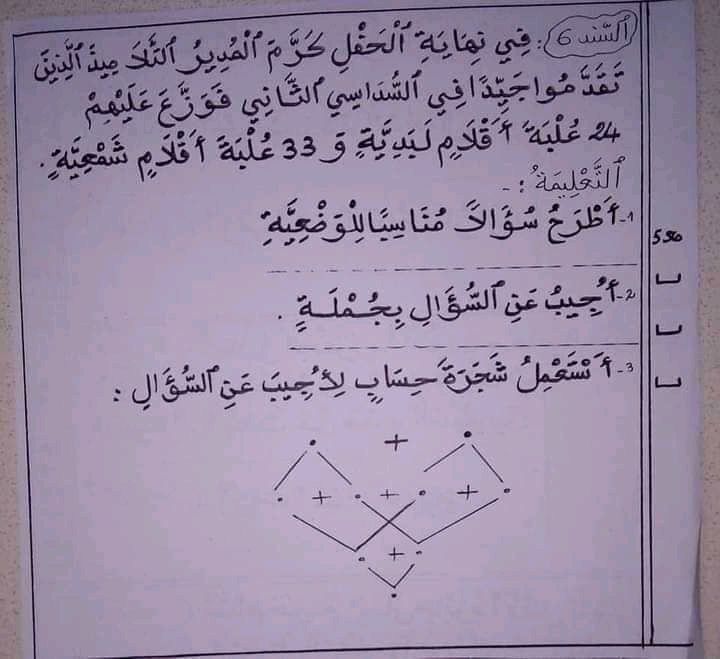 السَّند 6 : فِي نِهَايَةِ الْحَفْلِ كَرَّمَ الْمُدِيرُ التَّلَامِيذَ الَّذِينَ
تَقَدَّمُوا جَيِّدًا فِي السُّدَاسِي الثَّانِي فَوَزَّعَ عَلَيْهِمْ
24 عُلْبَةَ أَقْلَامٍ لَبَدِيَّةٍ وَ 33 عُلْبَةَ أَقْلَامٍ شَمْعِيَّةٍ .
التَّعْلِيمَةُ : -
1- أَطْرَحُ سُؤَالاً مُنَاسِبًا لِلْوَضْعِيَّةِ
2- أُجِيبُ عَنِ السُّؤَالِ بِجُمْلَةٍ .
3- أَسْتَعْمِلُ شَجَرَةَ حِسَابٍ لِأُجِيبَ عَنِ السُّؤَالِ :
+
+ + +
+